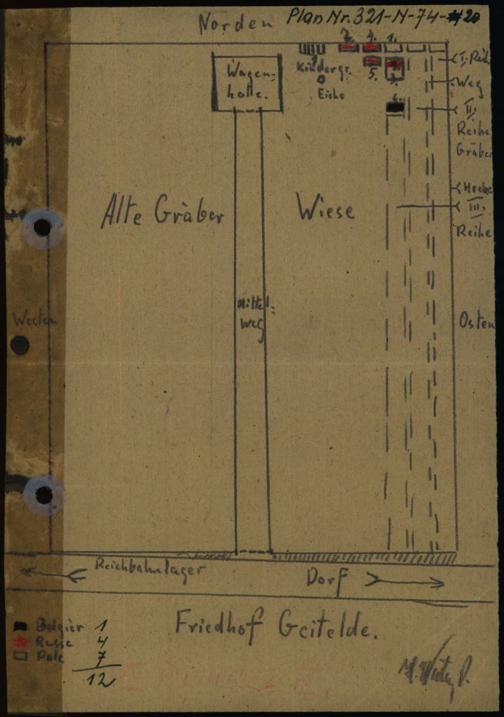 Plan Nr. 321-N-74-
20
Norden
7. 4. 1.
Kindergr.
5.
Eiche
Wagen-
halle.
I. Reih
Weg
II.
Reihe
Gräber
Hecke
III.
Reihe
Alte Gräber
Wiese
Westen
Mittel-
weg
Osten
Reichbahnlager
Dorf
Friedhof Geitelde.
Belgier 1
Russe 4
Pole 7
12